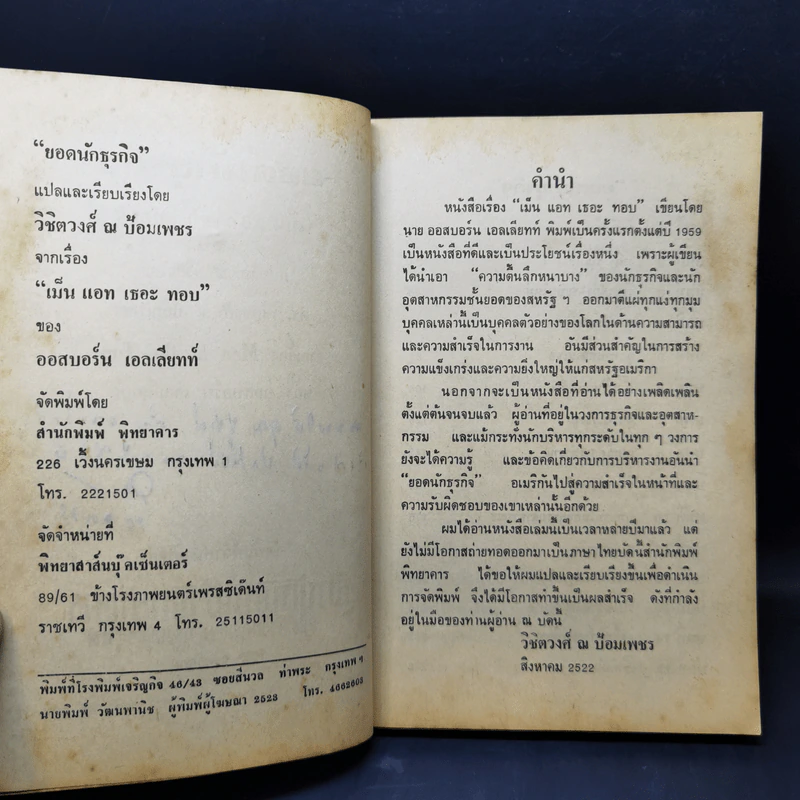 “ยอดนักธุรกิจ”
แปลและเรียบเรียงโดย
วิชิตวงศ์ ณ ป้อมเพชร
จากเรื่อง
“เม็น แอท เธอะ ทอบ”
ของ
ออสบอร์น เอลเลียทท์
จัดพิมพ์โดย
สำนักพิมพ์ พิทยาคาร
226 เวิ้งนครเขษม กรุงเทพ 1
โทร. 2221501
จัดจำหน่ายที่
พิทยาสาส์นบุ๊คเซ็นเตอร์
89/61 ข้างโรงภาพยนตร์เพรสซิเด๊นท์
ราชเทวี กรุงเทพ 4 โทร. 25115011
พิมพ์ที่โรงพิมพ์เจริญกิจ 46/43 ซอยสีนวถ ท่าพระ กรุงเทพ ฯ
นายพิมพ์ วัฒนพานิช ผู้พิมพ์ผู้โฆษณา 2523 โทร. 4662603
คำนำ
หนังสือเรื่อง “เม็น แอท เธอะ ทอบ” เขียนโดย
นาย ออสบอร์น เอลเลียทท์ พิมพ์เป็นครั้งแรกตั้งแต่ปี 1959
เป็นหนังสือที่ดีและเป็นประโยชน์เรื่องหนึ่ง เพราะผู้เขียน
ได้นำเอา “ความตื้นลึกหนาบาง” ของนักธุรกิจและนัก
อุตสาหกรรมชั้นยอดของสหรัฐ ฯ ออกมาตีแผ่ทุกแง่ทุกมุม
บุคคลเหล่านี้เป็นบุคคลตัวอย่างของโลกในด้านความสามารถ
และความสำเร็จในการงาน อันมีส่วนสำคัญในการสร้าง
ความแข็งเกร่งและความยิ่งใหญ่ให้แก่สหรัฐอเมริกา
นอกจากจะเป็นหนังสือที่อ่านได้อย่างเพลิดเพลิน
ตั้งแต่ต้นจนจบแล้ว ผู้อ่านที่อยู่ในวงการธุรกิจและอุตสาห-
กรรม และแม้กระทั่งนักบริหารทุกระดับในทุก ๆ วงการ
ยังจะได้ความรู้ และข้อคิดเกี่ยวกับการบริหารงานอันนำ
“ยอดนักธุรกิจ” อเมริกันไปสู่ความสำเร็จในหน้าที่และ
ความรับผิดชอบของเขาเหล่านั้นอีกด้วย
ผมได้อ่านหนังสือเล่มนี้เป็นเวลาหลายปีมาแล้ว แต่
ยังไม่มีโอกาสถ่ายทอดออกมาเป็นภาษาไทยบัดนี้สำนักพิมพ์
พิทยาคาร ได้ขอให้ผมแปลและเรียบเรียงขึ้นเพื่อดำเนิน
การจัดพิมพ์ จึงได้มีโอกาสทำขึ้นเป็นผลสำเร็จ ดังที่กำลัง
อยู่ในมือของท่านผู้อ่าน ณ บัดนี้
วิชิตวงศ์ ณ ป้อมเพชร
สิงหาคม 2522